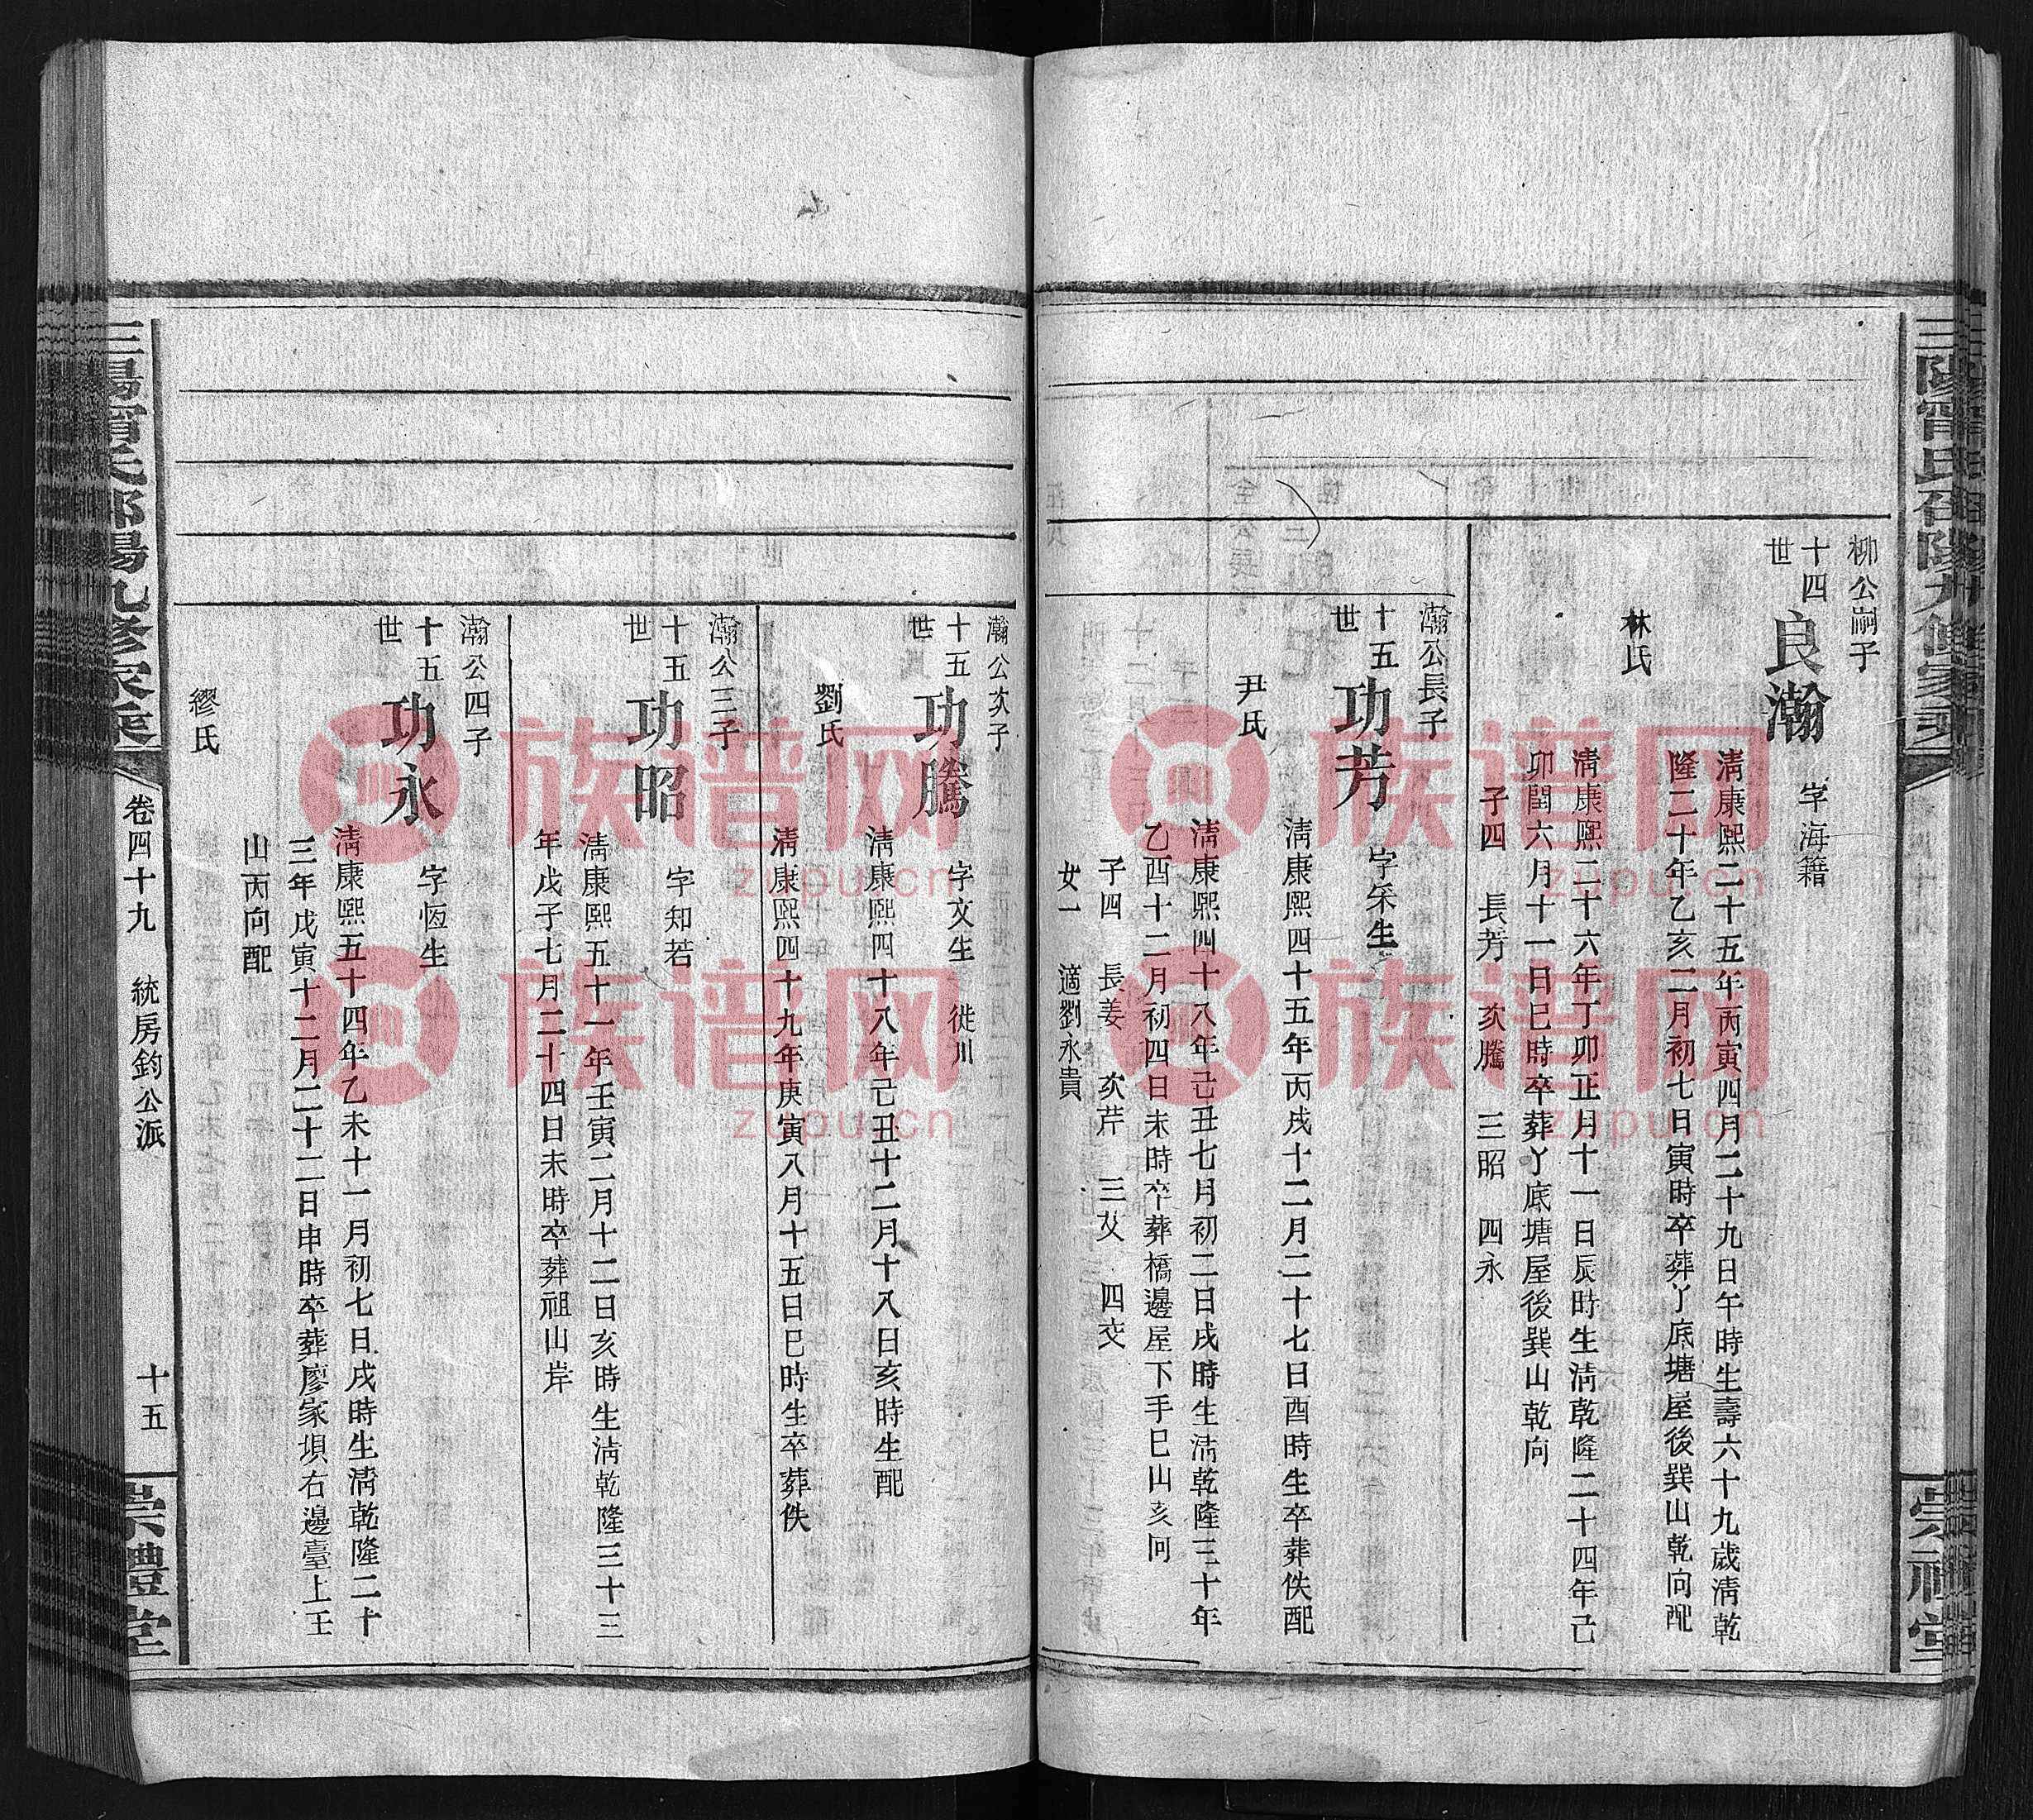 柳公嗣子
十四世
良瀚
字海籍
清康熙二十五年丙寅四月二十九日午時生壽六十九歲清乾
隆二十年乙亥二月初七日寅時卒葬丫底塘屋後巽山乾向配
林氏
清康熙二十六年丁卯正月十一日辰時生清乾隆二十四年己
卯閏六月十一日巳時卒葬丫底塘屋後巽山乾向
子四 長芳 次騰 三昭 四永
瀚公長子
十五世
功芳
字采生
清康熙四十五年丙戌十二月二十七日酉時生卒葬佚配
尹氏
清康熙四十八年己丑七月初二日戌時生清乾隆三十年
乙酉十二月初四日未時卒葬橋邊屋下手巳山亥向
子四 長姜 次芹 三苃 四茭
女一 適劉永貴
瀚公次子
十五世
功騰
字文生 徙川
清康熙四十八年己丑十二月十八日亥時生配
劉氏
清康熙四十九年庚寅八月十五日巳時生卒葬佚
瀚公三子
十五世
功昭
字知若
清康熙五十一年壬寅二月十二日亥時生清乾隆三十三
年戊子七月二十四日未時卒葬祖山岸
瀚公四子
十五世
功永
字恆生
清康熙五十四年乙未十一月初七日戌時生清乾隆二十
三年戊寅十二月二十二日申時卒葬廖家垻右邊臺上壬
山丙向配
繆氏
三陽甯氏邵陽九修家乘
卷四十九 統房鈞公派
十五
崇禮堂
族谱网
zupu.cn
族谱网
zupu.cn
族谱网
zupu.cn
族谱网
zupu.cn